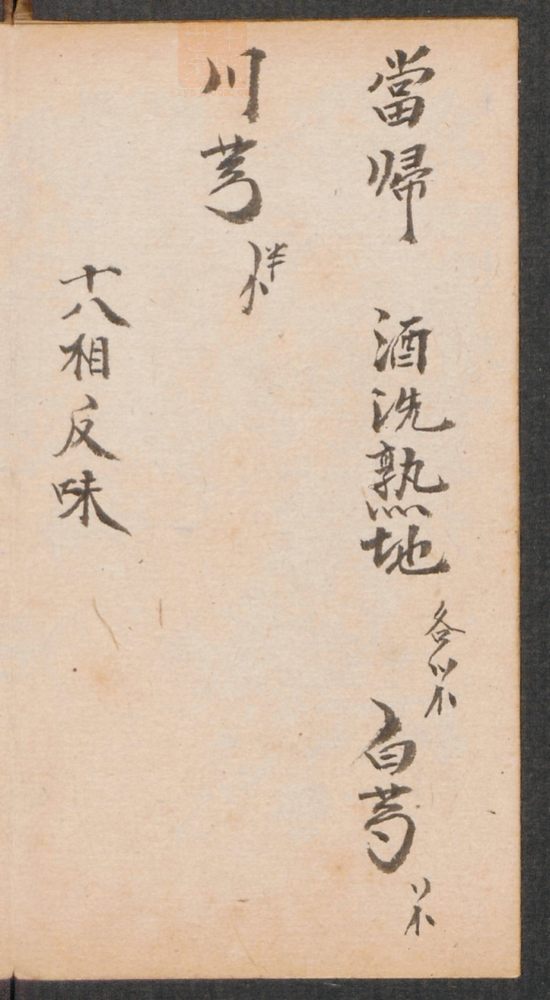 當帰 酒洗熟地 各 白芍
川芎
十八相反味